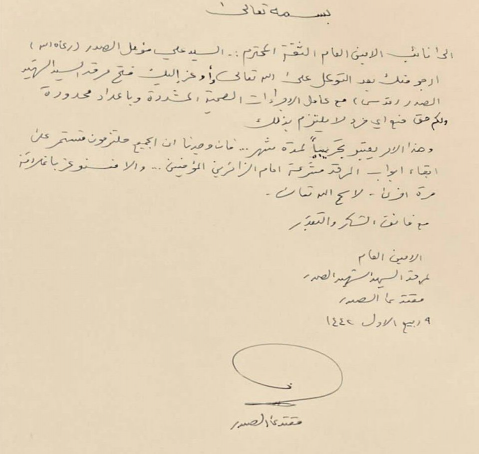 بسمه تعالى
الى نائب الامين العام الثقة المحترم :.. السيد علي مؤمل الصدر (رعاه الله)
ارجو منك بعد التوكل على الله تعالى وأوعز إليك فتح مرقد السيد الشهيد
الصدر (قدس) مع كامل الاجراءات الصحية المشددة وباعداد محدودة
ولكم حق منع اي فرد لا يلتزم بذلك
وهذا الامر يعتبر تجريبياً لمدة شهر .. فان وجدنا ان الجميع ملتزمون فنستمر على
ابقاء ابواب المرقد مشرعة امام الزائرين المؤمنين .. والا فسنوعز باغلاقه
مرة اخرى - لا سمح الله تعالى -
مع فائق الشكر والتقدير
الامين العام
لمرقد السيد الشهيد الصدر
مقتدى الصدر
٩ ربيع الاول ١٤٤٢
مقتدى الصدر